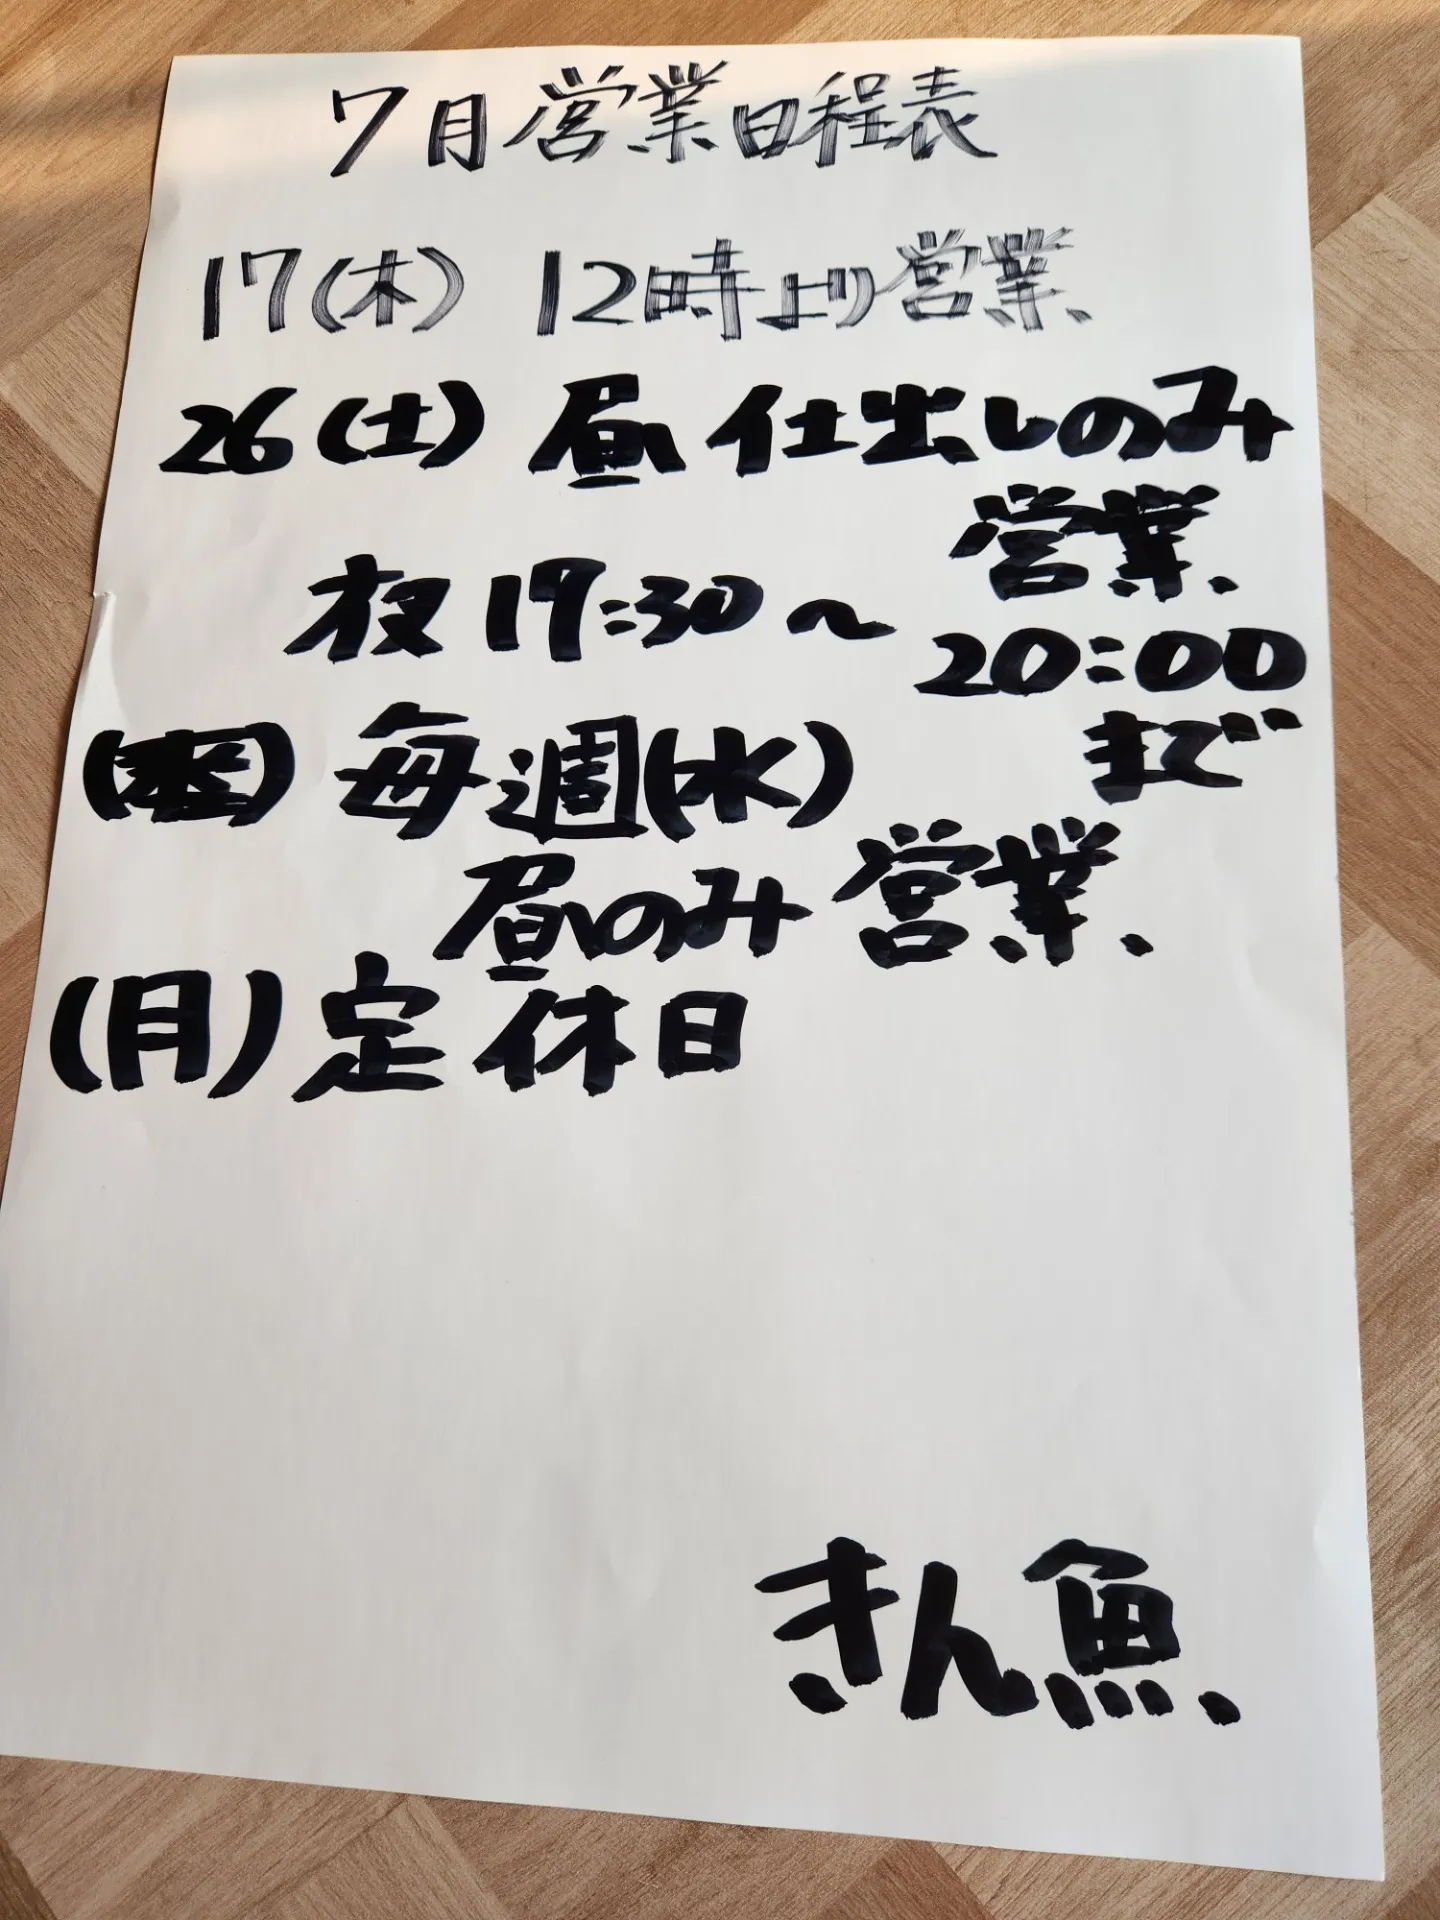 7月営業日程表
17(木) 12時より営業、
26(土) 昼 仕出しのみ
営業、
夜17:30~
20:00
まで
毎週(水)
昼のみ営業、
(月)定休日
きん魚、